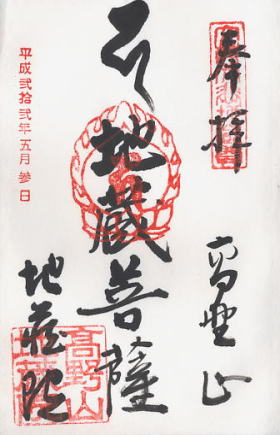 奉拝
高野山
地蔵菩薩
地蔵院
平成弐拾弐年五月参日
高野山
地蔵院